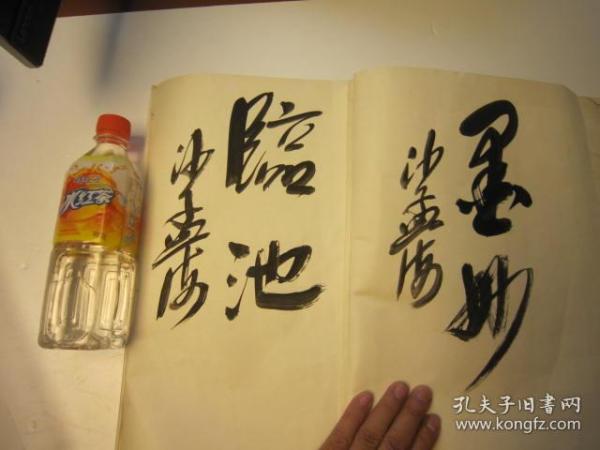 墨妙
沙孟海
臨池
沙孟海
冰红茶
孔夫子旧书网
www.kongfz.com